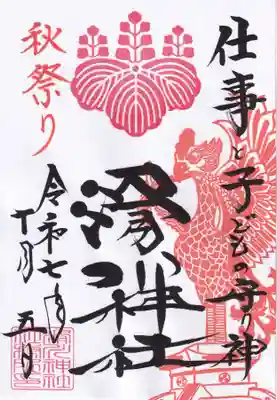 仕事と子どもの守り神
神社
秋祭り
令和七年
十月五日